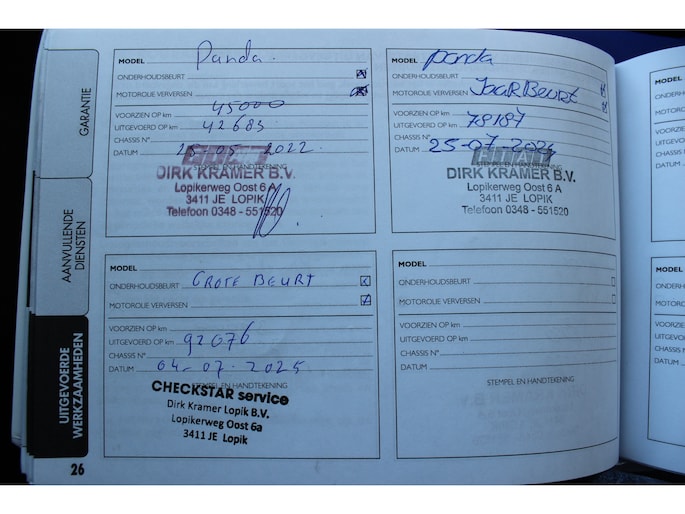 GARANTIE
AANVULLENDE DIENSTEN
UITGEVOERDE WERKZAAMHEDEN
26
MODEL Panda
ONDERHOUDSBEURT
MOTOROLIE VERVERSEN
VOORZIEN OP km 45000
UITGEVOERD OP km 42683
CHASSIS N°
DATUM 25-05-2022
STEMPEL EN HANDTEKENING
DIRK KRAMER B.V.
Lopikerweg Oost 6 A
3411 JE LOPIK
Telefoon 0348 - 551520
MODEL panda
ONDERHOUDSBEURT
MOTOROLIE VERVERSEN JaarBeurt
VOORZIEN OP km
UITGEVOERD OP km 78187
CHASSIS N°
DATUM 25-07-2024
STEMPEL EN HANDTEKENING
DIRK KRAMER B.V.
Lopikerweg Oost 6 A
3411 JE LOPIK
Telefoon 0348 - 551520
MODEL
ONDERHOUDSBEURT GROTE BEURT
MOTOROLIE VERVERSEN
VOORZIEN OP km
UITGEVOERD OP km 92076
CHASSIS N°
DATUM 04-07-2025
STEMPEL EN HANDTEKENING
CHECKSTAR service
Dirk Kramer Lopik B.V.
Lopikerweg Oost 6a
3411 JE Lopik
MODEL
ONDERHOUDSBEURT
MOTOROLIE VERVERSEN
VOORZIEN OP km
UITGEVOERD OP km
CHASSIS N°
DATUM
STEMPEL EN HANDTEKENING
MODEL
VOORZIEN
CHASSIS
DATUM
MODEL
DATUM